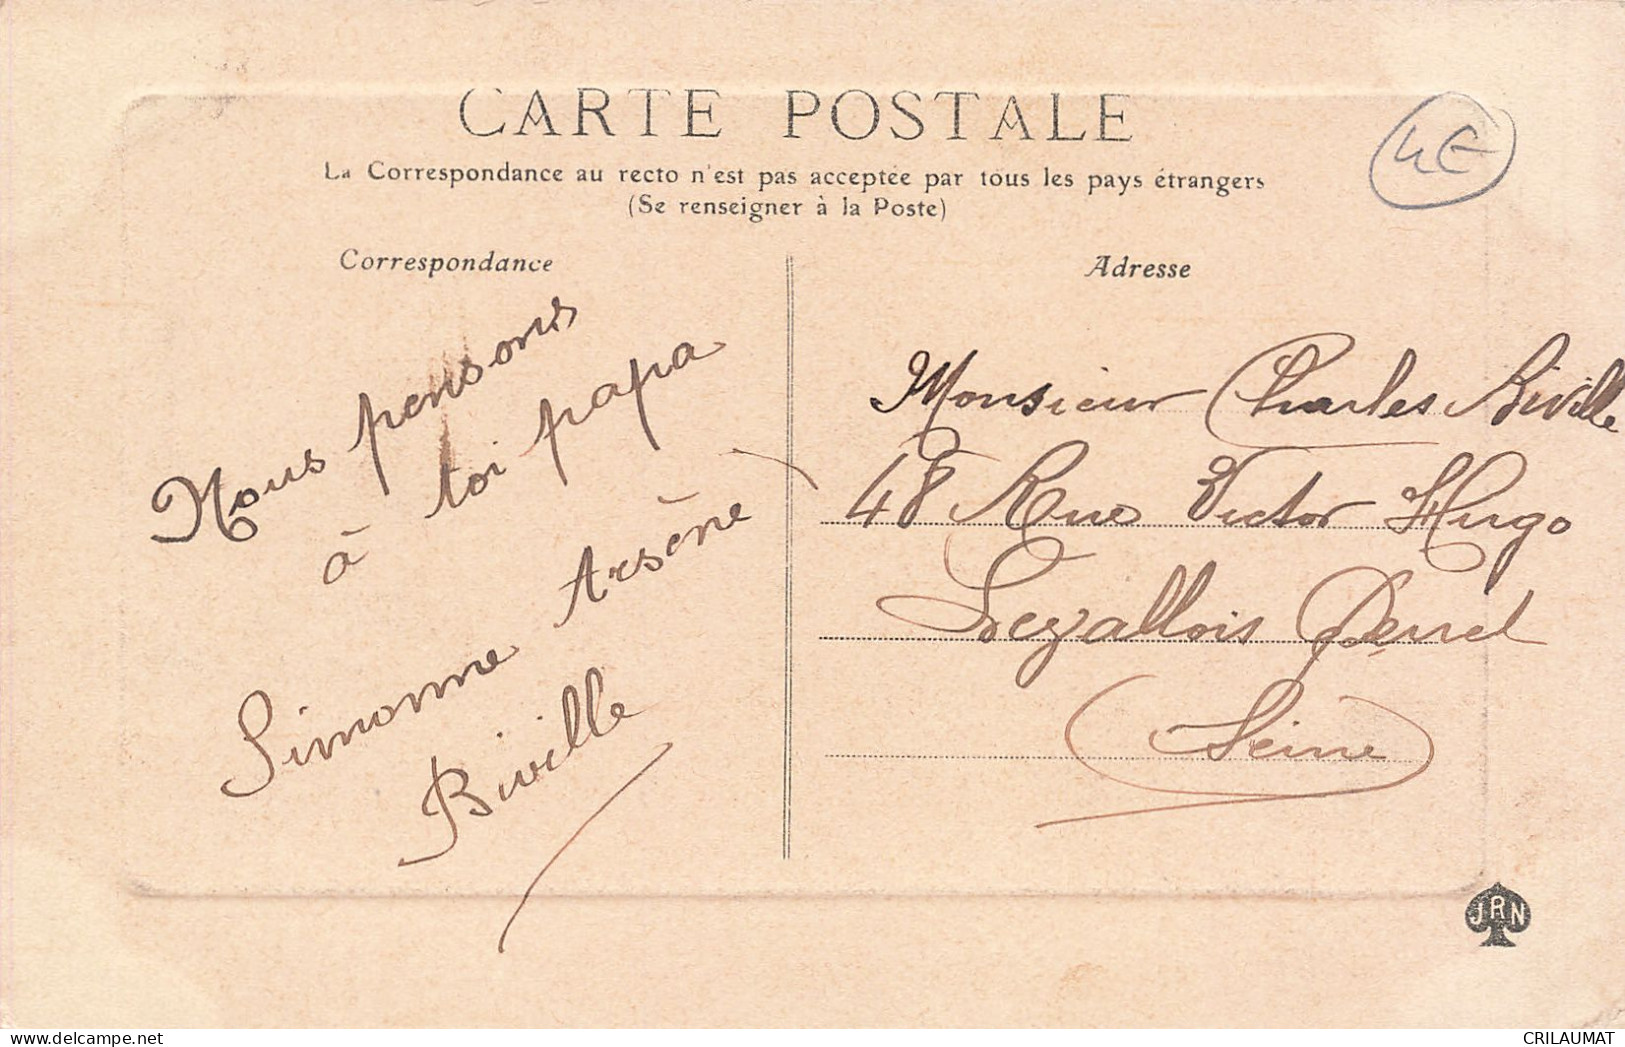 CARTE POSTALE
La Correspondance au recto n'est pas acceptée par tous les pays étrangers
(Se renseigner à la Poste)
Correspondance
Nous pensons
à toi papa
Arsène
Simonne
Biville
Adresse
Monsieur Charles Biville
48 Rue Victor Hugo
Levallois Perret
(Seine)
4€
JRN
CRILAUMAT